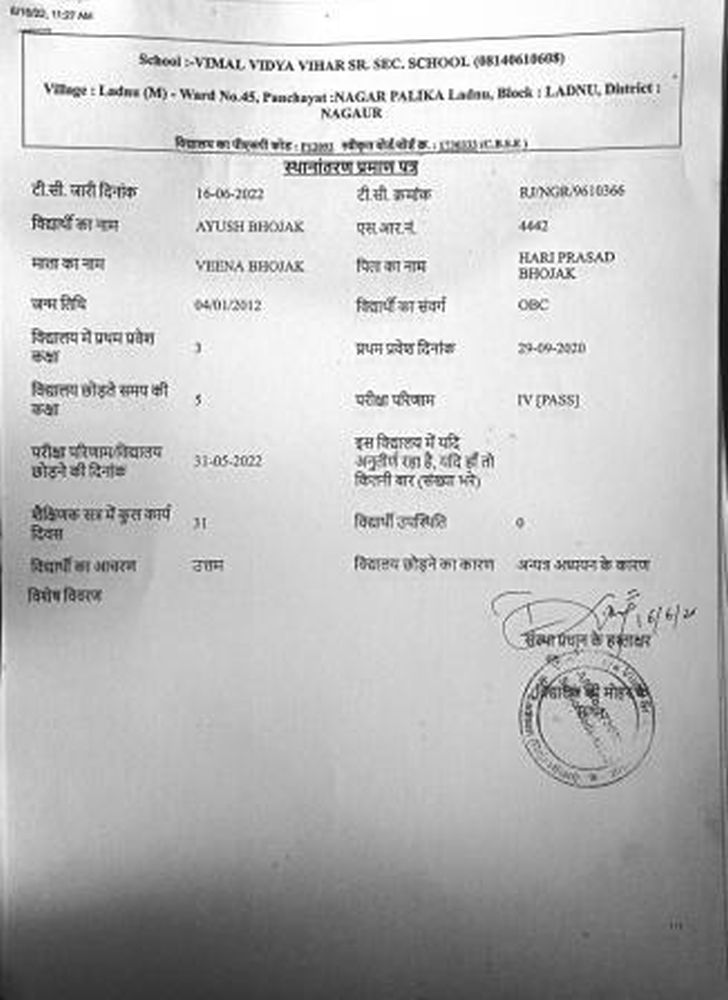 11:27 AM
School :-VIMAL VIDYA VIHAR SR. SEC. SCHOOL (08140610608)
Village : Ladnu (M) - Ward No.45, Panchayat :NAGAR PALIKA Ladnu, Block : LADNU, District :
NAGAUR
विद्यालय का पीएसपी कोड : स्वीकृत बोर्ड कोर्ड क्र. : (C.B.S.E)
स्थानांतरण प्रमाण पत्र
टी.सी. जारी दिनांक 16-06-2022 टी.सी. क्रमांक RJ/NGR/9610366
विद्यार्थी का नाम AYUSH BHOJAK एस.आर.नं. 4442
माता का नाम VEENA BHOJAK पिता का नाम HARI PRASAD
BHOJAK
जन्म तिथि 04/01/2012 विद्यार्थी का संवर्ग OBC
विद्यालय में प्रथम प्रवेश
कक्षा 3 प्रथम प्रवेश दिनांक 29-09-2020
विद्यालय छोड़ते समय की
कक्षा 5 परीक्षा परिणाम IV [PASS]
परीक्षा परिणाम/विद्यालय
छोड़ने की दिनांक 31-05-2022 इस विद्यालय में यदि
अनुतीर्ण रहा है, यदि हाँ तो
कितनी बार (संख्या भरे)
शैक्षिणक सत्र में कुल कार्य
दिवस 31 विद्यार्थी उपस्थिति 0
विद्यार्थी का आचरण उत्तम विद्यालय छोड़ने का कारण अन्यत्र अध्ययन के कारण
विशेष विवरण
संस्था प्रधान के हस्ताक्षर
1/1